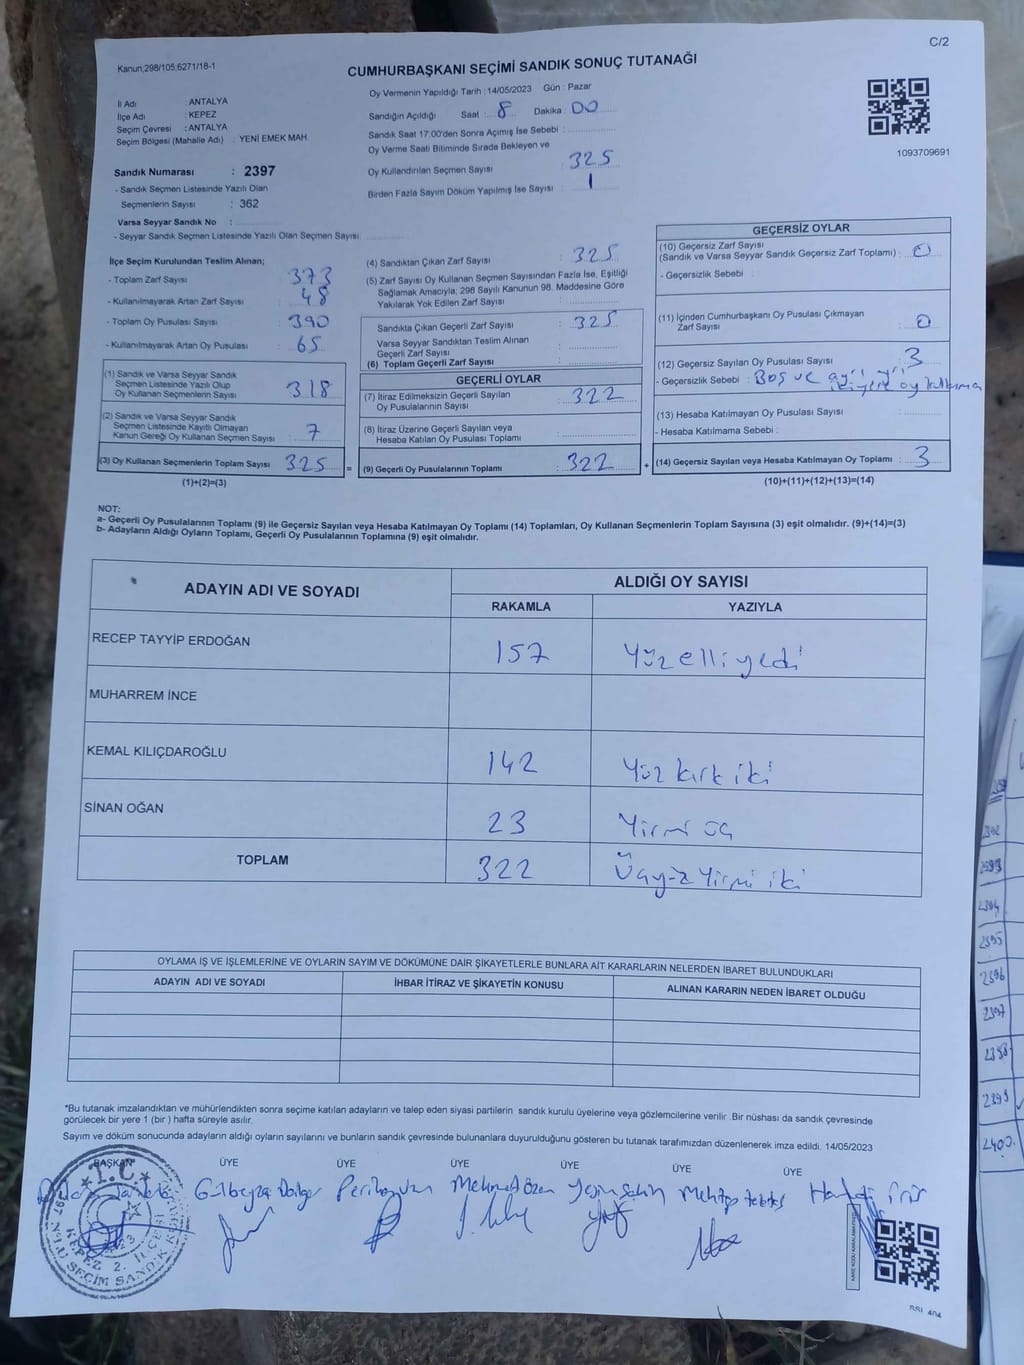 C/2
Kanun,298/105,6271/18-1
CUMHURBAŞKANI SEÇİMİ SANDIK SONUÇ TUTANAĞI
İl Adı : ANTALYA
İlçe Adı : KEPEZ
Seçim Çevresi : ANTALYA
Seçim Bölgesi (Mahalle Adı) : YENİ EMEK MAH.
Sandık Numarası : 2397
- Sandık Seçmen Listesinde Yazılı Olan
Seçmenlerin Sayısı : 362
Varsa Seyyar Sandık No :
- Seyyar Sandık Seçmen Listesinde Yazılı Olan Seçmen Sayısı:
Oy Vermenin Yapıldığı Tarih : 14/05/2023 Gün : Pazar
Sandığın Açıldığı Saat : 8 Dakika : 00
Sandık Saat 17:00'den Sonra Açımış İse Sebebi :
Oy Verme Saati Bitiminde Sırada Bekleyen ve
Oy Kullandırılan Seçmen Sayısı : 325
Birden Fazla Sayım Döküm Yapılmış İse Sayısı : 1
1093709691
İlçe Seçim Kurulundan Teslim Alınan;
- Toplam Zarf Sayısı : 373
- Kullanılmayarak Artan Zarf Sayısı : 48
- Toplam Oy Pusulası Sayısı : 390
- Kullanılmayarak Artan Oy Pusulası : 65
(1) Sandık ve Varsa Seyyar Sandık
Seçmen Listesinde Yazılı Olup
Oy Kullanan Seçmenlerin Sayısı : 318
(2) Sandık ve Varsa Seyyar Sandık
Seçmen Listesinde Kayıtlı Olmayan
Kanun Gereği Oy Kullanan Seçmen Sayısı : 7
(3) Oy Kullanan Seçmenlerin Toplam Sayısı : 325
(1)+(2)=(3)
(4) Sandıktan Çıkan Zarf Sayısı : 325
(5) Zarf Sayısı Oy Kullanan Seçmen Sayısından Fazla İse, Eşitliği
Sağlamak Amacıyla; 298 Sayılı Kanunun 98. Maddesine Göre
Yakılarak Yok Edilen Zarf Sayısı :
Sandıkta Çıkan Geçerli Zarf Sayısı : 325
Varsa Seyyar Sandıktan Teslim Alınan
Geçerli Zarf Sayısı :
(6) Toplam Geçerli Zarf Sayısı :
GEÇERLİ OYLAR
(7) İtiraz Edilmeksizin Geçerli Sayılan
Oy Pusulalarının Sayısı : 322
(8) İtiraz Üzerine Geçerli Sayılan veya
Hesaba Katılan Oy Pusulası Toplamı :
= (9) Geçerli Oy Pusulalarının Toplamı : 322
GEÇERSİZ OYLAR
(10) Geçersiz Zarf Sayısı
(Sandık ve Varsa Seyyar Sandık Geçersiz Zarf Toplamı) : 0
- Geçersizlik Sebebi :
(11) İçinden Cumhurbaşkanı Oy Pusulası Çıkmayan
Zarf Sayısı : 0
(12) Geçersiz Sayılan Oy Pusulası Sayısı : 3
- Geçersizlik Sebebi : Boş ve ayrı ayrı
oy kullanma
(13) Hesaba Katılmayan Oy Pusulası Sayısı :
- Hesaba Katılmama Sebebi :
+ (14) Geçersiz Sayılan veya Hesaba Katılmayan Oy Toplamı : 3
(10)+(11)+(12)+(13)=(14)
NOT:
a- Geçerli Oy Pusulalarının Toplamı (9) ile Geçersiz Sayılan veya Hesaba Katılmayan Oy Toplamı (14) Toplamları, Oy Kullanan Seçmenlerin Toplam Sayısına (3) eşit olmalıdır. (9)+(14)=(3)
b- Adayların Aldığı Oyların Toplamı, Geçerli Oy Pusulalarının Toplamına (9) eşit olmalıdır.
ADAYIN ADI VE SOYADI ALDIĞI OY SAYISI
RAKAMLA YAZIYLA
RECEP TAYYİP ERDOĞAN 157 Yüz elli yedi
MUHARREM İNCE
KEMAL KILIÇDAROĞLU 142 Yüz kırk iki
SİNAN OĞAN 23 Yirmi üç
TOPLAM 322 Üçyüz Yirmi iki
OYLAMA İŞ VE İŞLEMLERİNE VE OYLARIN SAYIM VE DÖKÜMÜNE DAİR ŞİKAYETLERLE BUNLARA AİT KARARLARIN NELERDEN İBARET BULUNDUKLARI
ADAYIN ADI VE SOYADI İHBAR İTİRAZ VE ŞİKAYETİN KONUSU ALINAN KARARIN NEDEN İBARET OLDUĞU
*Bu tutanak imzalandıktan ve mühürlendikten sonra seçime katılan adayların ve talep eden siyasi partilerin sandık kurulu üyelerine veya gözlemcilerine verilir. Bir nüshası da sandık çevresinde
görülecek bir yere 1 (bir ) hafta süreyle asılır.
Sayım ve döküm sonucunda adayların aldığı oyların sayılarını ve bunların sandık çevresinde bulunanlara duyurulduğunu gösteren bu tutanak tarafımızdan düzenlenerek imza edildi. 14/05/2023
BAŞKAN ÜYE ÜYE ÜYE ÜYE ÜYE ÜYE
Mehmet Özen Yeşim Şahin
T.C.
KEPEZ 2. İLÇE
SEÇİM SANDIK
2393
2394
2395
2396
2397
2398
2399
2400